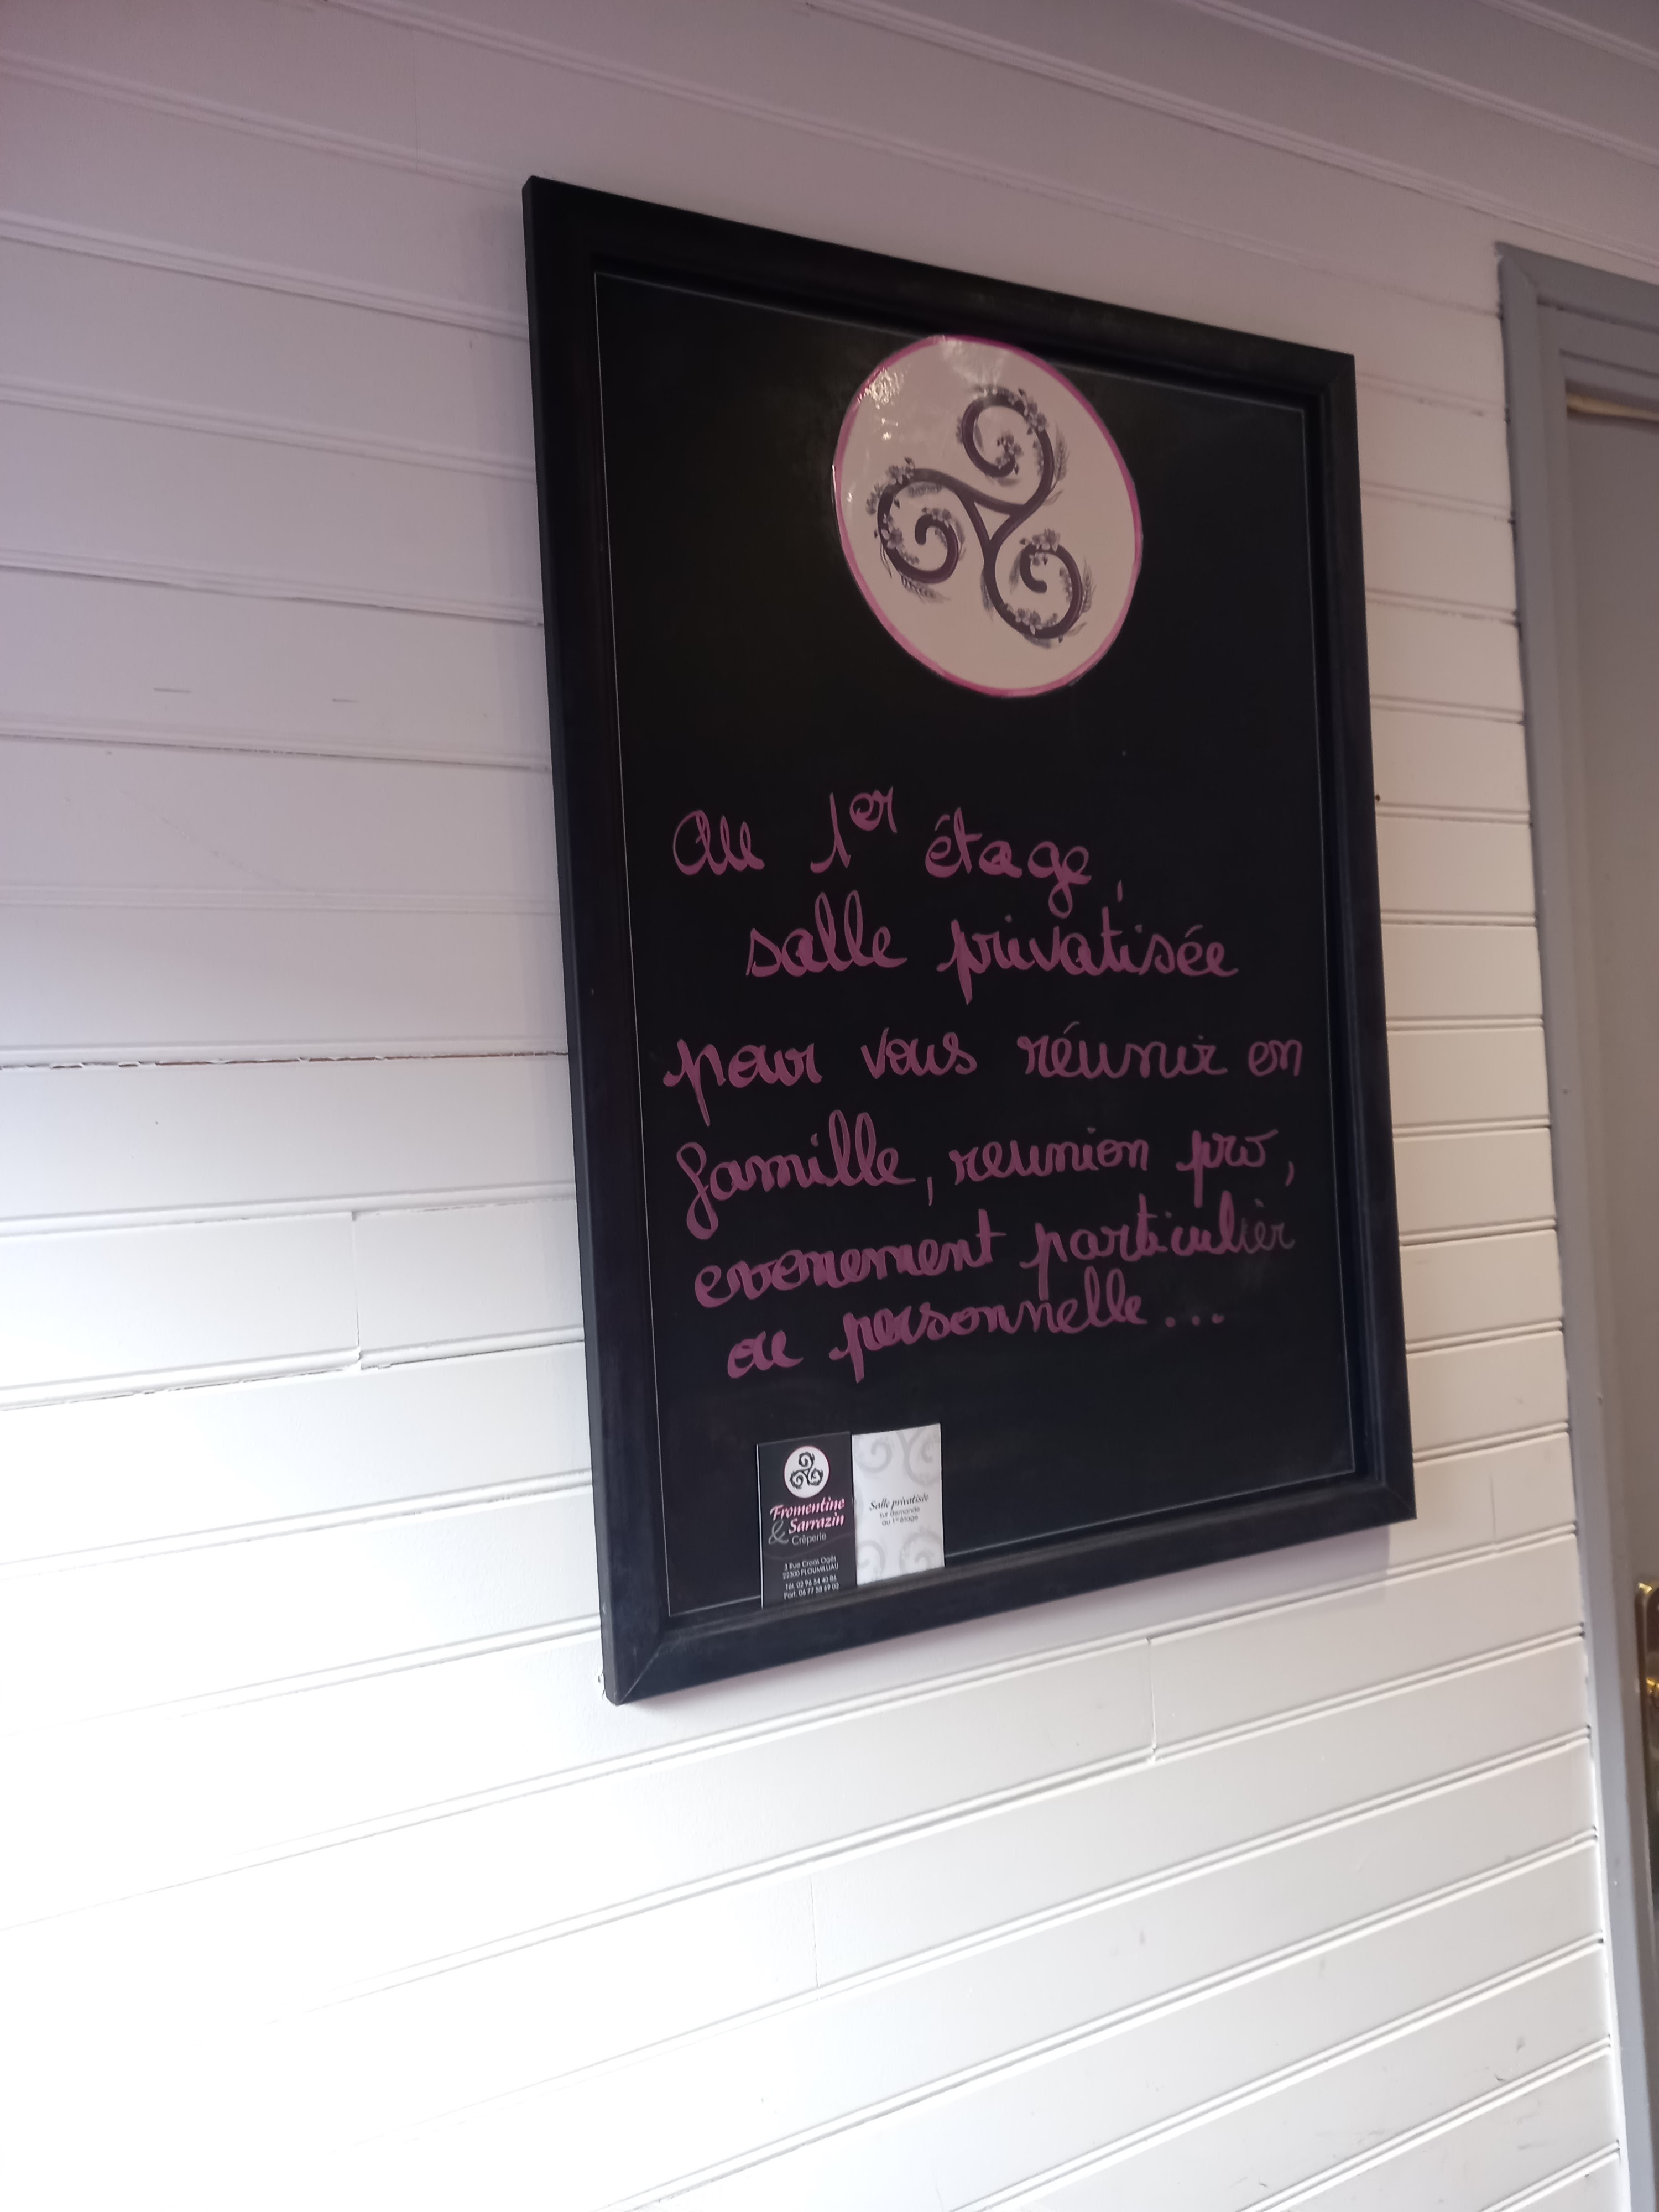 Au 1er étage,
salle privatisée
pour vous réunir en
famille, reunion pro,
evenement particulier
ou personnelle...
Fromentine
& Sarrazin
Crêperie
3 Rue Croas Ogès
22300 PLOUMILLIAU
Tél. 02 96 54 40 86
Port. 06 77 38 69 02
Salle privatisée
sur demande
au 1er étage